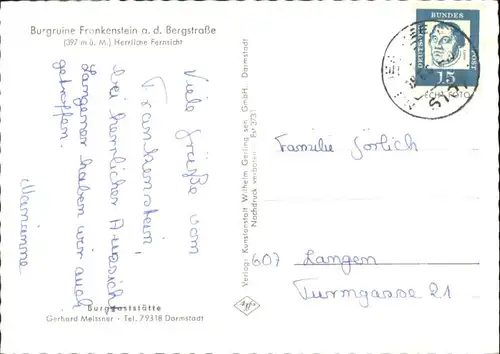 Burgruine Frankenstein a. d. Bergstraße
(397 m ü. M.) Herrliche Fernsicht
Viele Grüße vom
Frankenstein,
bei herrlicher Aussicht
Langener haben wir auch
getroffen.
Marianne
Burggaststätte
Gerhard Meissner - Tel. 79318 Darmstadt
Verlag: Kunstanstalt Wilhelm Gerling sen. GmbH, Darmstadt
Nachdruck verboten Fr 3731
DEUTSCHE
BUNDES
POST
15
Familie Görlich
607 Langen
Turmgasse 21